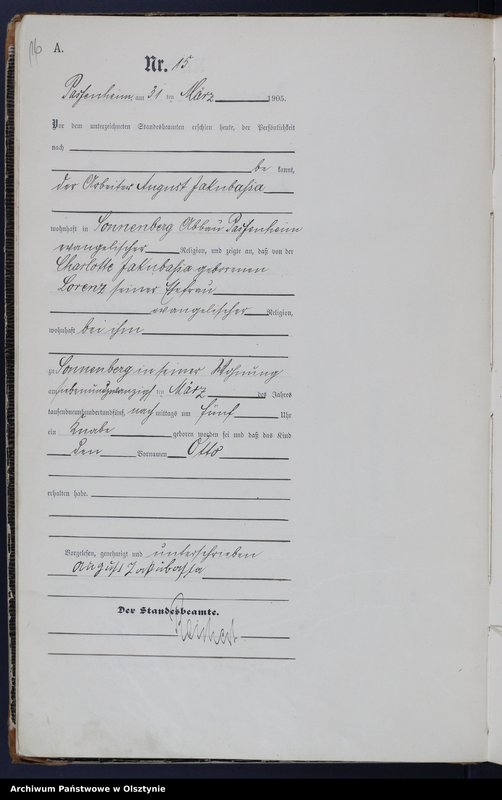 A.
Nr. 15
Passenheim, am 31 ten März 1905.
Vor dem unterzeichneten Standesbeamten erschien heute, der Persönlichkeit
nach
be kannt,
der Arbeiter August Jakubassa
wohnhaft in Sonnenberg Abbau Passenheim
evangelischer Religion, und zeigte an, daß von der
Charlotte Jakubassa geborenen
Lorenz seiner Ehefrau
evangelischer Religion,
wohnhaft bei ihm
zu Sonnenberg in seiner Wohnung
am siebenundzwanzigsten März des Jahres
tausendneunhundertundfünf, nach mittags um fünf Uhr
ein Knabe geboren worden sei und daß das Kind
den Vornamen Otto
erhalten habe.
Vorgelesen, genehmigt und unterschrieben
August Jakubassa
Der Standesbeamte.
Archiwum Państwowe w Olsztynie